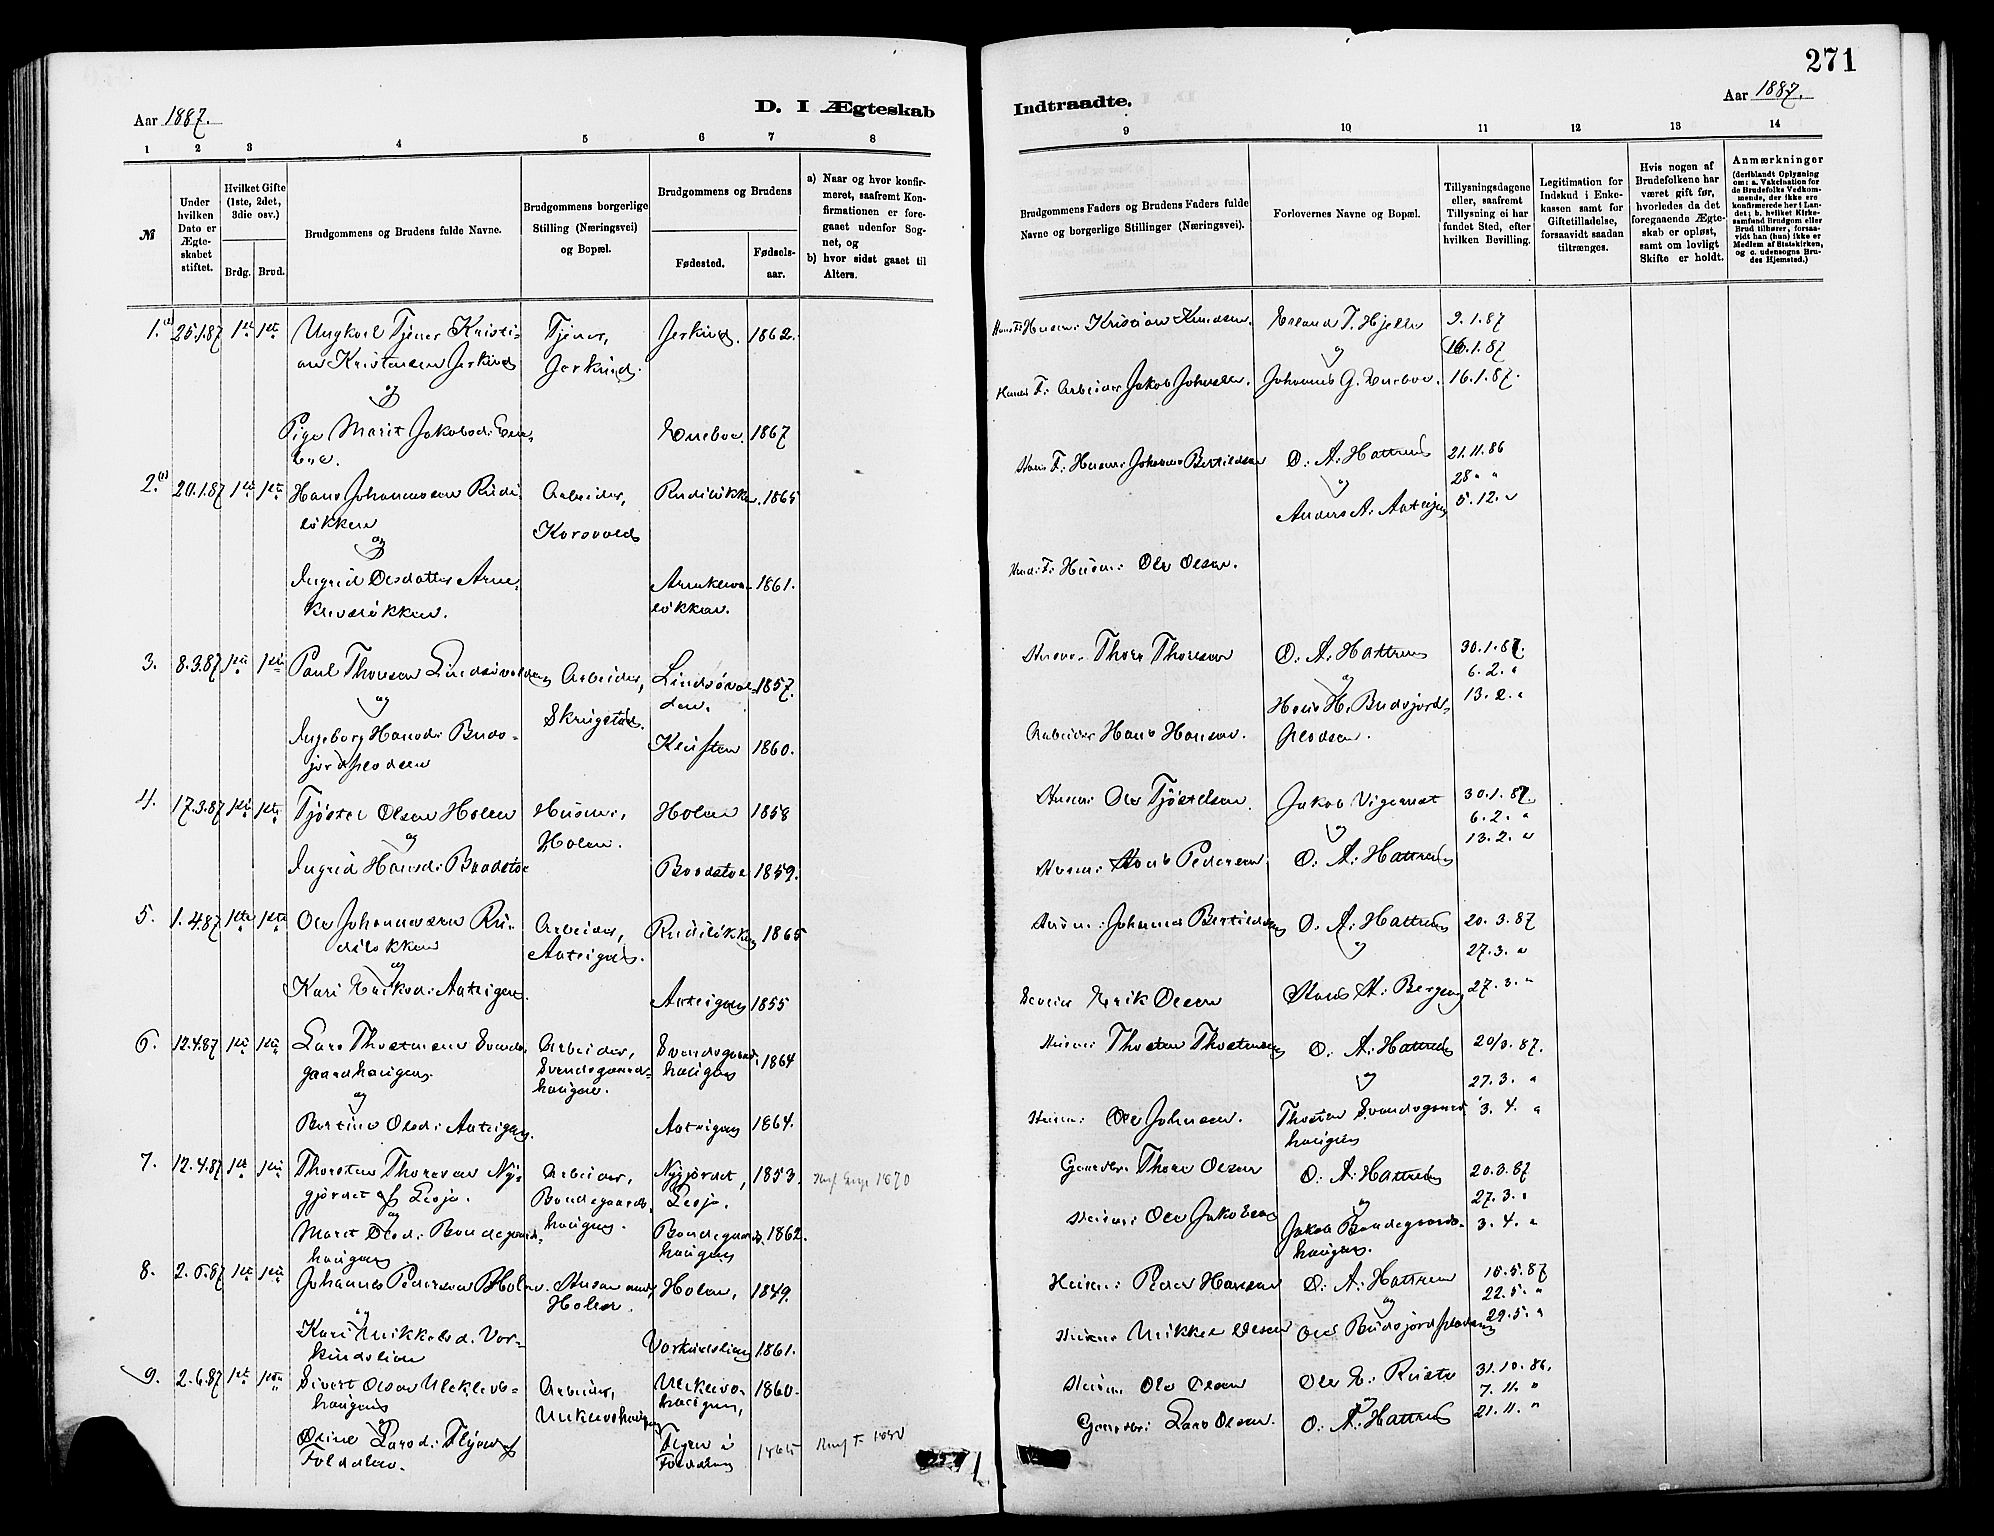 271
Aar 1887.
D. I Ægteskab
Indtraadte.
Aar 1887.
1 2 3 4 5 6 7 8
9 10 11 12 13 14
№
Under hvilken Dato er Ægteskabet stiftet.
Hvilket Gifte (1ste, 2det, 3die osv.)
Brdg. Brud.
Brudgommens og Brudens fulde Navne.
Brudgommens borgerlige Stilling (Næringsvei) og Bopæl.
Brudgommens og Brudens
Fødested.
Fødselsaar.
a) Naar og hvor konfirmeret, saafremt Konfirmationen er foregaaet udenfor Sognet, og
b) hvor sidst gaaet til Alters.
Brudgommens Faders og Brudens Faders fulde Navne og borgerlige Stillinger (Næringsvei).
Forlovernes Navne og Bopæl.
Tillysningsdagene eller, saafremt Tillysning ei har fundet Sted, efter hvilken Bevilling.
Legitimation for Indskud i Enkekassen samt for Giftetilladelse, forsaavidt saadan tiltrænges.
Hvis nogen af Brudefolkene har været gift før, hvorledes da det foregaaende Ægteskab er opløst, samt om lovligt Skifte er holdt.
Anmærkninger (deriblandt Oplysning om: a. Vakcination for de Brudefolks Vedkommende, der ikke ere konfirmerede her i Landet; b. hvilket Kirkesamfund Brudgom eller Brud tilhører, forsaavidt han (hun) ikke er Medlem af Statskirken, og c. udensogns Brudes Hjemsted.)
1. 25.1.87 1ste 1ste Ungkarl Tjener Kristian Kristensen Jerkind Tjener, Jerkind. Jerkind. 1862.
Kristian Knudsen. Erland T. Hjelle 9.1.87
og
16.1.87
Arbeider Jakob Johnsen. Johannes G. Eneboe. 16.1.87.
og
Pige Marit Jakobsd: Eneboe. Eneboe. 1867
2. 20.1.87 1ste 1ste Hans Johannesen Rudiløkken Arbeider, Korsvold Rudiløkken. 1865
Hans F: Husm: Johannes Bertildsen O: A: Hattrem 21.11.86
og 28 " "
Anders A: Aateigen 5.12. "
og
Ingrid Olsdatter 1861.
F: Husm: Ole Olsen.
3. 8.3.87 1ste 1ste Paul Thoresen Arbeider, Skrugstad. 1857.
Thore Thoresen O: A: Hattrem 30.1.87.
og 6.2. "
Hans H. Budsjord- 13.2. "
pladsen.
og
Ingeborg Hansd: Budsjordpladsen Kleiften 1860.
Arbeider Hans Hansen.
4. 17.3.87 1ste 1ste Tjøstel Olsen Holen Husm:, Holen. Holen 1858
Husm: Ole Tjøstelsen. Jakob Vigerust 30.1.87.
og 6.2. "
O: A: Hattrem 13.2. "
og
Ingrid Hansd: Baadstoe Baadstoe 1859.
Husm: Hans Pedersen.
5. 1.4.87 1ste 1ste Ole Johannesen Rudiløkken Arbeider, Aateigen. Rudiløkken 1865
Husm: Johannes Bertildsen O. A: Hattrem 20.3.87
og 27.3. "
Hans A: Bergeng 27.3. "
og
Kari Eriksd: Aateigen. Aateigen 1855
Erik Olsen
6. 12.4.87 1ste 1ste Lars Thostensen Svendsgaardhaugen. Arbeider, Svendsgaardshaugen. Svendsgaardhaugen 1864
Husm: Thosten Thostensen O: A: Hattrem 20/3.87.
og 27.3. "
Thosten Svendsgaardhaugen 3.4. "
og
Bertine Olsd: Aateigen. Aateigen 1864.
Husm: Ole Johnsen.
7. 12.4.87 1ste 1ste Thorsten Thoresen Nygjordet af Lesje. Arbeider, Bondegaardshaugen. Nygjordet, Lesje. 1853. 1870
Gaardbr: Thore Olsen O: A: Hattrem 20.3.87
og 27.3. "
Jakob Bondegaardshaugen. 3.4. "
og
Marit Olsd: Bondegaardhaugen Bondegaardshaugen 1862.
Husm: Ole Jakobsen
8. 2.6.87 1ste 1ste Johannes Pedersen Holen. Husmand, Holen. Holen, 1849.
Husm: Peder Hansen O: A: Hattrem 15.5.87
og 22.5. "
Ole Budsjordpladsen 29.5. "
og
Kari Mikkelsd. Vorkindslien Vorkindslien 1861.
Husm: Mikkel Olsen
9. 2.6.87 1ste 1ste Sivert Olsen Uleklevshaugen Arbeider, Uleklevshaugen Uleklevshaugen, 1860.
Husm: Ole Olsen Ole E. Ruste 31.10.86.
og 7.11. "
O: A: Hattrem 21.11. "
Larsd: Foldalen. Foldalen 1865 1880
Gaardbr: Lars Olsen.